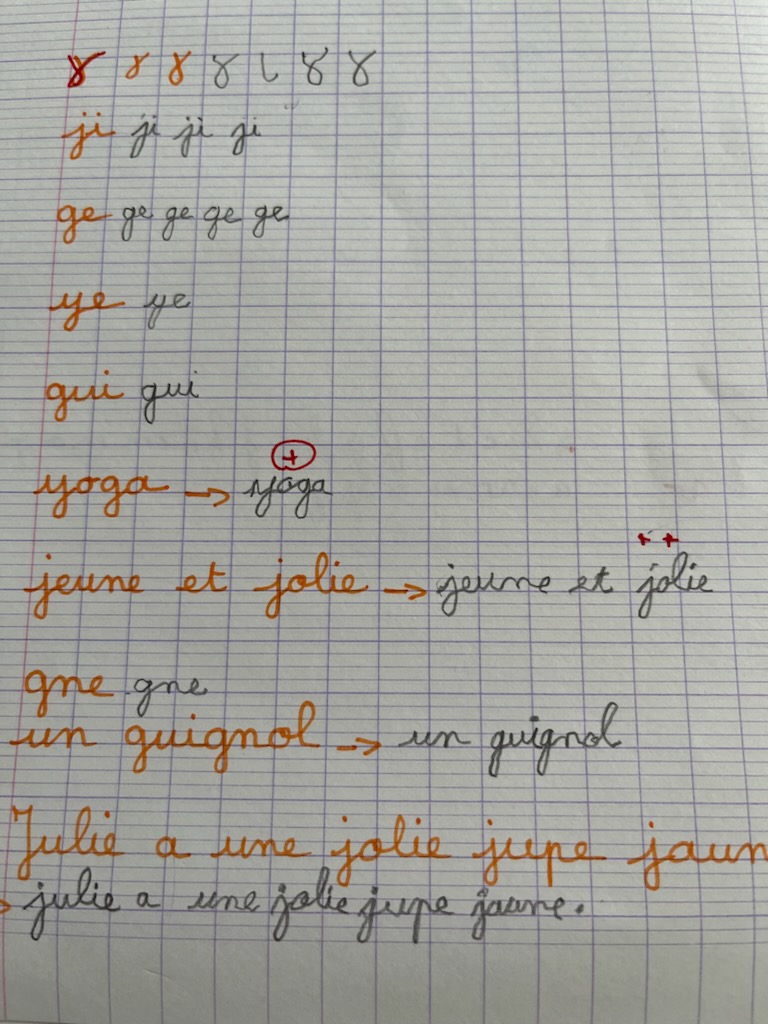 ji ji ji ji
ge ge ge ge ge
ye ye
gui gui
+
yoga → yoga
+ +
jeune et jolie → jeune et jolie
gne gne
un guignol → un guignol
Julie a une jolie jupe jaun
julie a une jolie jupe jaune.